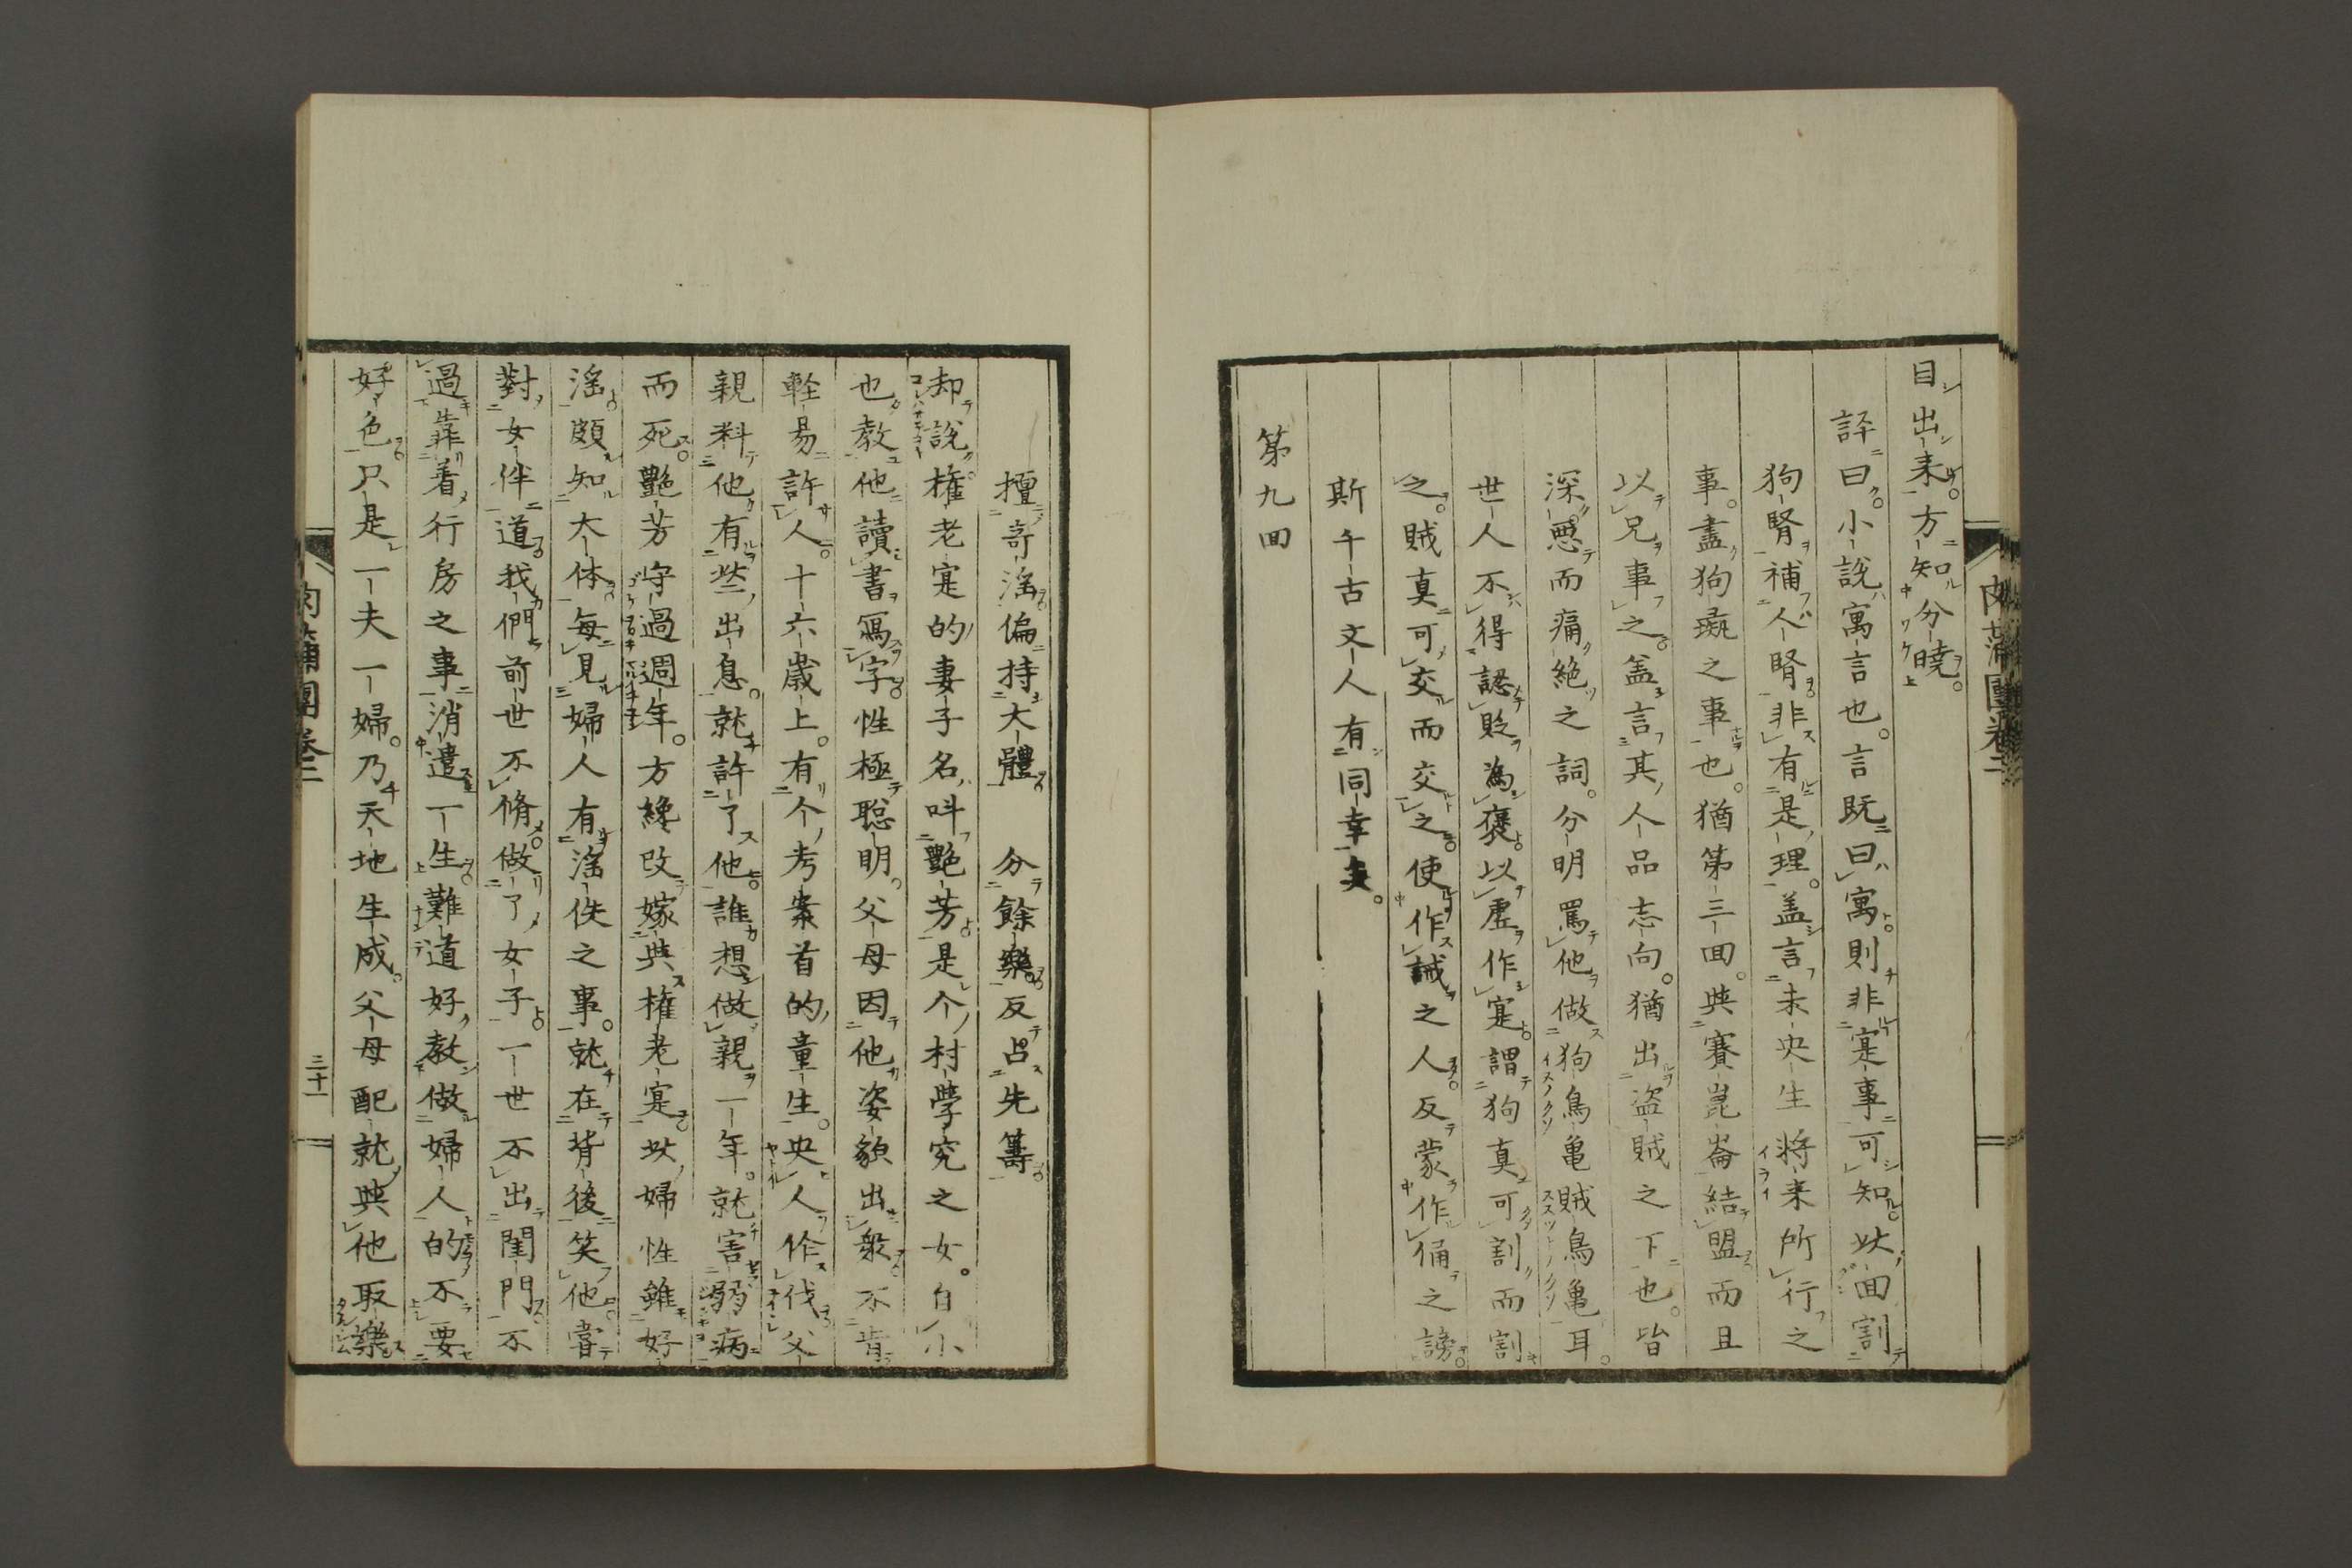 目出来方知分暁。
評曰。小說寓言也。言既曰寓。則非寔事可知。此回割
狗腎補人腎。非有是理。盖言未央生將来所行之
事。盡狗彘之事也。猶第三回。與賽崑崙結盟而且
以兄事之。盖言其人品志向。猶出盗賊之下也。皆
深惡而痛絶之詞。分明罵他做狗鳥亀賊鳥亀耳。
世人不得認貶為褒。以虚作寔。謂狗真可割而割
之。賊真可交而交之。使作誡之人。反蒙作俑之謗。
斯千古文人有同幸夫。
第九回
擅奇滛偏持大體 分餘樂反占先籌
却說權老寔的妻子名叫艶芳。是个村學究之女。自小
也教他讀書寫字。性極聡明。父母因他姿貌出衆。不肯
軽易許人。十六歳上。有个考案首的童生。央人作伐。父
親料他有些出息。就許了他。誰想做親一年。就害弱病
而死。艶芳守過週年。方纔改嫁與權老寔。此婦性雖好
滛。頗知大体。毎見婦人有滛佚之事。就在背後笑他。嘗
對女伴道。我們前世不脩。做了女子。一世不出閨門。不
過靠着行房之事消遣一生。難道好教做婦人的不要
好色。只是一夫一婦。乃天地生成。父母配就。與他取樂
肉蒲團卷二
肉蒲團卷二
三十一